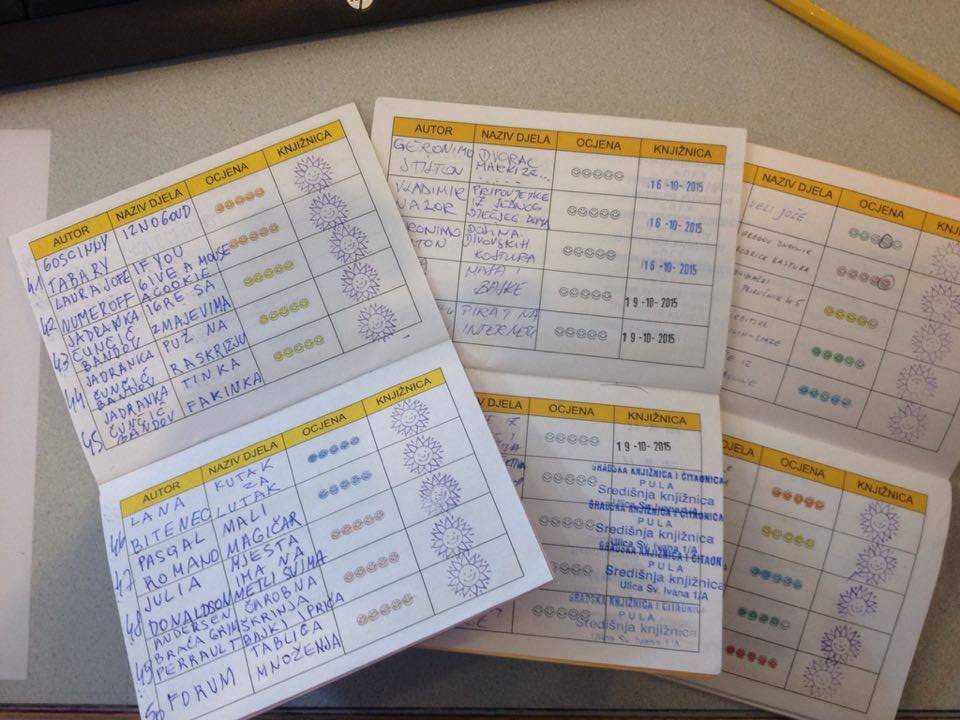 AUTOR NAZIV DJELA OCJENA KNJIŽNICA
41 GOSCINNY TABARY IZNOGOUD
42 LAURA JOFFE NUMEROFF IF YOU GIVE A MOUSE A COOKIE
43 JADRANKA ČUNČIĆ BANDOV IGRE SA ZMAJEVIMA
44 JADRANKA ČUNČIĆ BANDOV PUŽ NA RASKRIŽJU
45 JADRANKA ČUNČIĆ BANDOV TINKA FAKINKA
AUTOR NAZIV DJELA OCJENA KNJIŽNICA
46 LANA BITENEC KUTAK ZA LUTAK
47 PASCAL ROMANO MALI MAGIČAR
48 JULIA DONALDSON MJESTA IMA NA METLI SVIMA
49 ANDERSEN BRAĆA GRIMM PERRAULT ČAROBNA ŠKRINJA BAJKI I PRIČA
50 FORUM TABLICA MNOŽENJA
AUTOR NAZIV DJELA OCJENA KNJIŽNICA
GERONIMO STILTON DVORAC MARKIZE... 16-10-2015
VLADIMIR NAZOR PRIPOVJETKE IZ JEDNOG DJEČJEG DOMA 16-10-2015
DOLINA DIVOVSKIH KOSTURA 16-10-2015
BAJKE 19-10-2015
PIRAT NA INTERNETU 19-10-2015
DJELA OCJENA KNJIŽNICA
19-10-2015
GRADSKA KNJIŽNICA I ČITAONICA
PULA
Središnja knjižnica
GRADSKA KNJIŽNICA I ČITAONICA
PULA
Središnja knjižnica
Ulica Sv. Ivana 1/A
GRADSKA KNJIŽNICA I ČITAON
PULA
Središnja knjižnica
Ulica Sv. Ivana 1/A
GRADSKA KNJIŽNICA I ČITAONI
PULA
Središnja knjižnica
Ulica Sv. Ivana 1/A
NAZIV DJELA OCJENA KNJIŽN
VELI JOŽE
DJELA OCJENA KNJIŽNICA